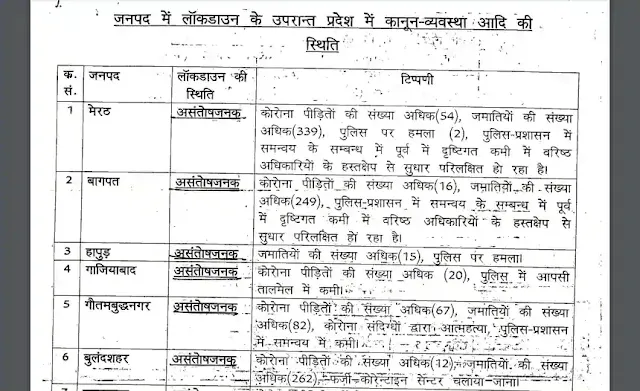 जनपद में लॉकडाउन के उपरान्त प्रदेश में कानून-व्यवस्था आदि की
स्थिति
क. सं. जनपद लॉकडाउन की स्थिति टिप्पणी
1 मेरठ असंतोषजनक कोरोना पीड़ितों की संख्या अधिक(54), जमातियों की संख्या
अधिक(339), पुलिस पर हमला (2), पुलिस-प्रशासन में
समन्वय के सम्बन्ध में पूर्व में दृष्टिगत कमी में वरिष्ठ
अधिकारियों के हस्तक्षेप से सुधार परिलक्षित हो रहा है।
2 बागपत असंतोषजनक कोरोना पीड़ितों की संख्या अधिक(16), जमातियों की संख्या
अधिक(249), पुलिस-प्रशासन में समन्वय के सम्बन्ध में पूर्व
में दृष्टिगत कमी में वरिष्ठ अधिकारियों के हस्तक्षेप से
सुधार परिलक्षित हो रहा है।
3 हापुड़ असंतोषजनक जमातियों की संख्या अधिक(15), पुलिस पर हमला।
4 गाजियाबाद असंतोषजनक कोरोना पीड़ितों की संख्या अधिक (20), पुलिस में आपसी
तालमेल में कमी।
5 गौतमबुद्धनगर असंतोषजनक कोरोना पीड़ितों की संख्या अधिक(67), जमातियों की संख्या
अधिक(82), कोरोना संदिग्धों द्वारा आत्महत्या, पुलिस-प्रशासन
में समन्वय में कमी।
6 बुलंदशहर असंतोषजनक कोरोना पीड़ितों की संख्या अधिक(12), जमातियों की संख्या
अधिक(262), फर्जी कोरेन्टाइन सेन्टर चलाया जाना।